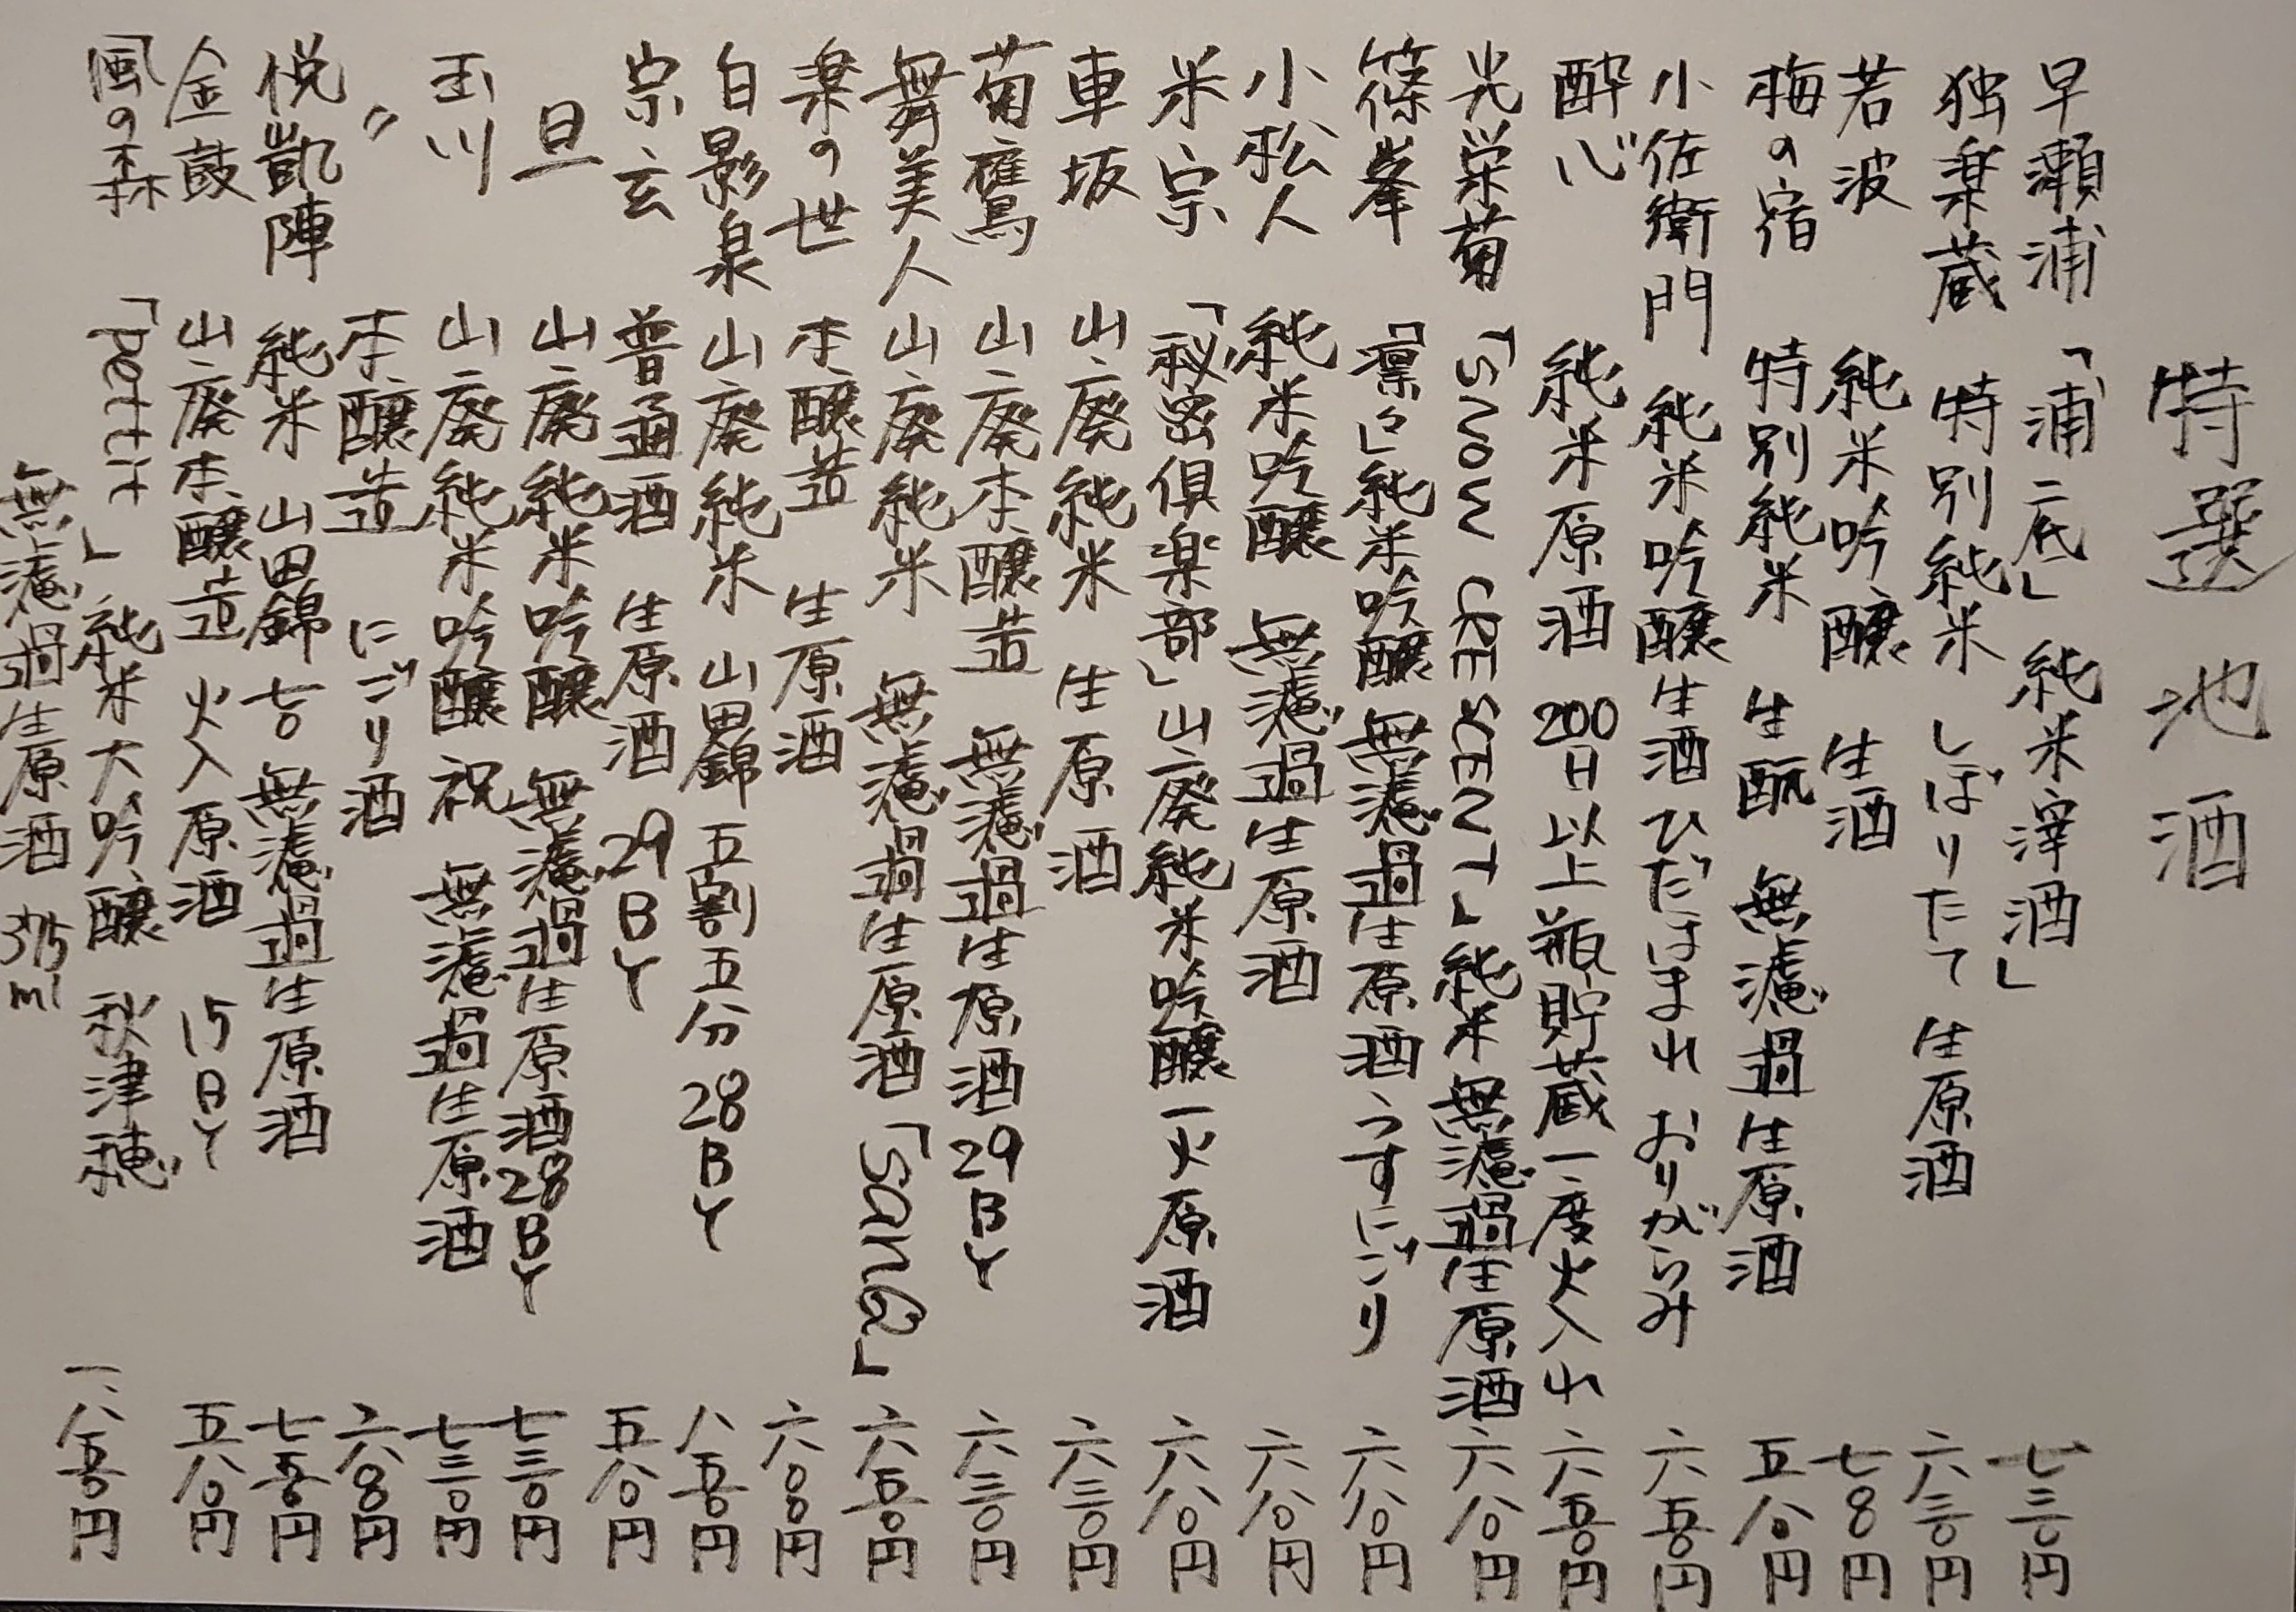 特選地酒
早瀬浦 「浦底」純米滓酒」 七三〇円
独楽蔵 特別純米 しぼりたて 生原酒 六三〇円
若波 純米吟醸 生酒 七〇〇円
梅の宿 特別純米 生酛 無濾過生原酒 五八〇円
小佐衛門 純米吟醸生酒ひだほまれ おりがらみ 六五〇円
酔心 純米原酒 200日以上瓶貯蔵一度火入れ 六五〇円
光栄菊 「SNOW CRESCENT」純米無濾過生原酒 六八〇円
篠峯 「凛々」純米吟醸 無濾過生原酒 うすにごり 六八〇円
小松人 純米吟醸 無濾過生原酒 六八〇円
米宗 「秘密倶楽部」山廃純米吟醸 一火原酒 六八〇円
車坂 山廃純米 生原酒 六三〇円
菊鷹 山廃本醸造 無濾過生原酒 29BY 六三〇円
舞美人 山廃純米 無濾過生原酒 「sanQ」 六五〇円
楽の世 本醸造 生原酒 六〇〇円
白影泉 山廃純米 山田錦 五割五分 28BY 八五〇円
宗玄 普通酒 生原酒 29BY 五八〇円
旦 山廃純米吟醸 無濾過生原酒28BY 七三〇円
玉川 山廃純米吟醸 祝 無濾過生原酒 七三〇円
〃 本醸造 にごり酒 六八〇円
悦凱陣 純米 山田錦 七〇 無濾過生原酒 七五〇円
金鼓 山廃本醸造 火入原酒 15BY 五八〇円
風の森 「petit」純米大吟醸 秋津穂 一、八五〇円
無濾過生原酒 375ml